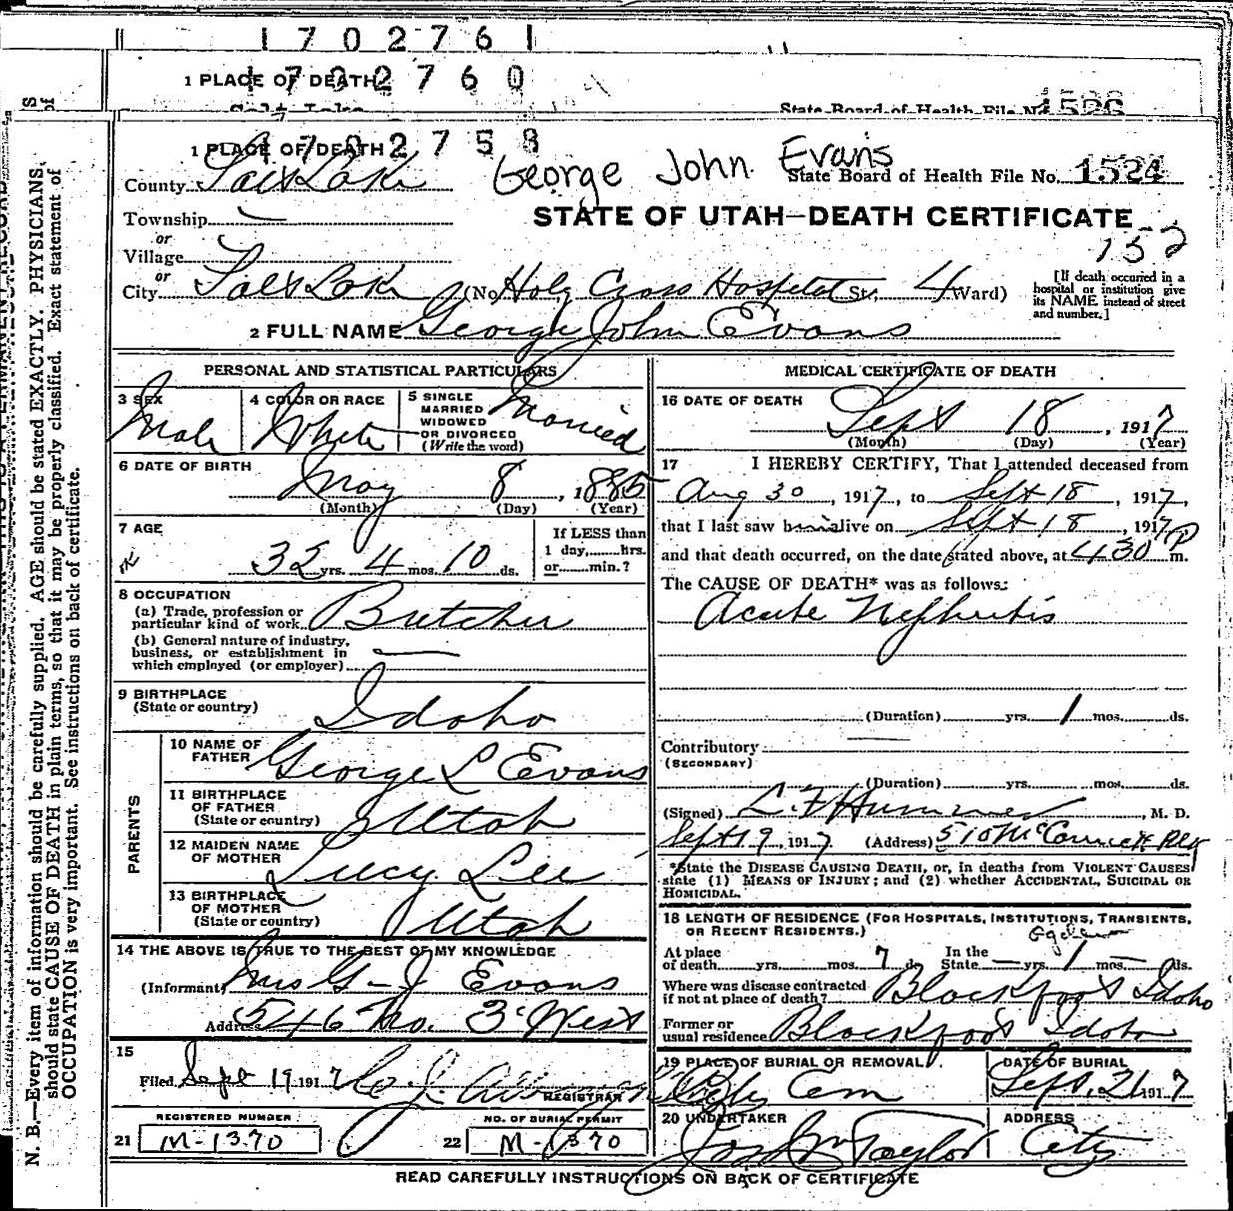 1 7 0 2 7 6 1
1 PLACE OF DEATH 1 7 0 2 7 6 0
Salt Lake State Board of Health File No. 1526
1 PLACE OF DEATH 1 7 0 2 7 5 8
George John Evans
County Salt Lake State Board of Health File No. 1524
Township
STATE OF UTAH—DEATH CERTIFICATE
or
152
Village
or
City Salt Lake (No Holy Cross Hospital St; 4 Ward)
[If death occurred in a
hospital or institution give
its NAME instead of street
and number.]
2 FULL NAME George John Evans
PERSONAL AND STATISTICAL PARTICULARS
3 SEX
Male
4 COLOR OR RACE
White
5 SINGLE
MARRIED
WIDOWED
OR DIVORCED
(Write the word)
Married
6 DATE OF BIRTH
May 8, 1885
(Month) (Day) (Year)
7 AGE
32 yrs. 4 mos. 10 ds.
If LESS than
1 day, hrs.
or min.?
8 OCCUPATION
(a) Trade, profession or
particular kind of work Butcher
(b) General nature of industry,
business, or establishment in
which employed (or employer)
9 BIRTHPLACE
(State or country)
Idaho
PARENTS
10 NAME OF
FATHER
George L Evans
11 BIRTHPLACE
OF FATHER
(State or country)
Utah
12 MAIDEN NAME
OF MOTHER
Lucy Lee
13 BIRTHPLACE
OF MOTHER
(State or country)
Utah
14 THE ABOVE IS TRUE TO THE BEST OF MY KNOWLEDGE
(Informant) Mrs G-J Evans
Address 546 No. 3d West
15
Filed Sept 19 1917
REGISTRAR
REGISTERED NUMBER
21 M-1370
NO. OF BURIAL PERMIT
22 M-1370
MEDICAL CERTIFICATE OF DEATH
16 DATE OF DEATH
Sept 18, 1917
(Month) (Day) (Year)
17 I HEREBY CERTIFY, That I attended deceased from
Aug 30, 1917, to Sept 18, 1917,
that I last saw him alive on Sept 18, 1917,
and that death occurred, on the date stated above, at 4 30 P m.
The CAUSE OF DEATH* was as follows:
Acute Nephritis
(Duration) yrs. 1 mos. ds.
Contributory
(SECONDARY)
(Duration) yrs. mos. ds.
(Signed) L. F. Hummer, M. D.
Sept 19, 1917. (Address) 510 McCornick Blk
*State the DISEASE CAUSING DEATH, or, in deaths from VIOLENT CAUSES
state (1) MEANS OF INJURY; and (2) whether ACCIDENTAL, SUICIDAL OR
HOMICIDAL.
18 LENGTH OF RESIDENCE (FOR HOSPITALS, INSTITUTIONS, TRANSIENTS,
OR RECENT RESIDENTS.)
At place In the
of death yrs. mos. 7 ds. State — yrs. 1 mos. — ds.
Where was disease contracted
if not at place of death? Blackfoot Idaho
Former or
usual residence Blackfoot Idaho
19 PLACE OF BURIAL OR REMOVAL
City Cem
DATE OF BURIAL
Sept. 21 1917
20 UNDERTAKER
Jos Wm Taylor
ADDRESS
City
READ CAREFULLY INSTRUCTIONS ON BACK OF CERTIFICATE
N. B.—Every item of information should be carefully supplied. AGE should be stated EXACTLY. PHYSICIANS,
should state CAUSE OF DEATH in plain terms, so that it may be properly classified. Exact statement of
OCCUPATION is very important. See instructions on back of certificate.